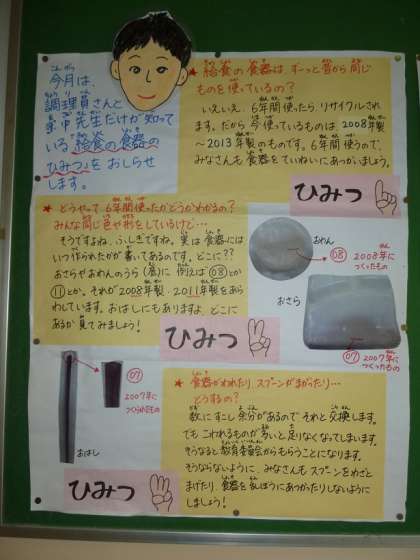 今月は、
調理員さんと
先生だけが知って
いる、給食の食器の
ひみつをおしらせ
します。
★給食の食器は、ずーっと昔から同じ
ものを使っているの?
いえいえ、6年間使ったら、リサイクルされ
ます。だから今使っているものは、2008年製
~2013年製のものです。6年間使うので、
みなさんも食器をていねいにあつかいましょう。
ひみつ
★どうやって、6年間使ったかどうかわかるの?
みんな同じ色や形をしているけど…
そうですよね、ふしぎですね。実は食器には
いつ作られたかが書いてあるのです。どこに??
おさらやおわんのうら(底)に例えば08とか
11とか。それが2008年製、2011年製をあら
わしています。おはしにもありますよ、どこに
あるか見てみましょう!
ひみつ
おわん
08
2008年に
つくったもの
おさら
07
2007年に
つくったもの
07
2007年に
つくられたもの
おはし
★食器がわれたり、スプーンがまがったり…
どうするの?
数にすこし余分があるので、それと交換します。
でもこわれるものが多いと足りなくなってしまいます。
そうなると教育委員会からもらうことになります。
そうならないように、みなさんもスプーンをわざと
まげたり、食器をらんぼうにあつかったりしないように
しましょう!
ひみつ